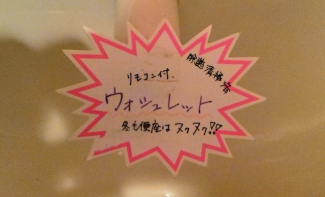 リモコン付.
ウォシュレット
冬も便座はヌクヌク!!